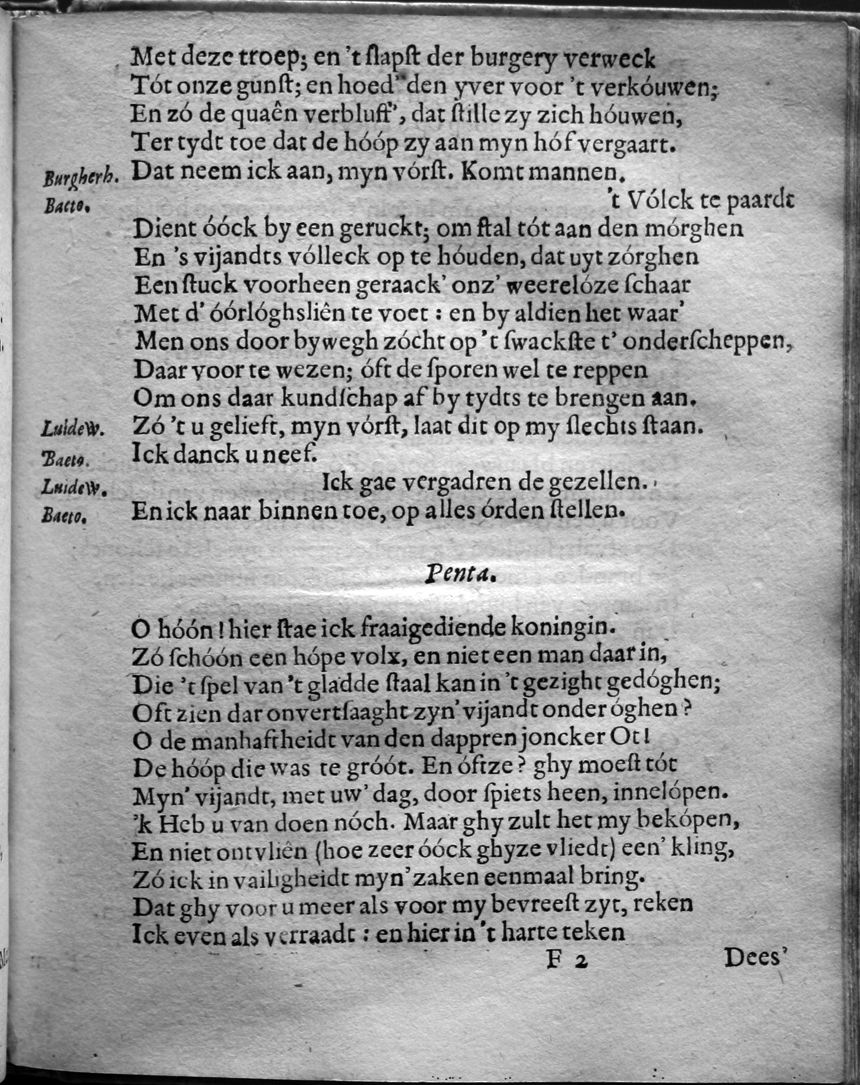 Met deze troep; en 't ſlapſt der burgery verweck
Tót onze gunſt; en hoed' den yver voor 't verkóuwen;
En zó de quaên verbluff', dat ſtille zy zich hóuwen,
Ter tydt toe dat de hóóp zy aan myn hóf vergaart.
Burgherh. Dat neem ick aan, myn vórſt. Komt mannen.
Baeto. 't Vólck te paardt
Dient óóck by een geruckt; om ſtal tót aan den mórghen
En 's vijandts vólleck op te hóuden, dat uyt zórghen
Een ſtuck voorheen geraack' onz' weerelóze ſchaar
Met d' óórlóghsliên te voet : en by aldien het waar'
Men ons door bywegh zócht op 't ſwackſte t' onderſcheppen,
Daar voor te wezen; óft de ſporen wel te reppen
Om ons daar kundſchap af by tydts te brengen aan.
Luidew. Zó 't u gelieft, myn vórſt, laat dit op my ſlechts ſtaan.
Baeto. Ick danck u neef.
Luidew. Ick gae vergadren de gezellen.
Baeto. En ick naar binnen toe, op alles órden ſtellen.
Penta.
O hóón ! hier ſtae ick fraai gediende koningin.
Zó ſchóón een hópe volx, en niet een man daar in,
Die 't ſpel van 't gladde ſtaal kan in 't gezight gedóghen;
Oft zien dar onvertſaaght zyn' vijandt onder óghen ?
O de manhaftheidt van den dappren joncker Ot !
De hóóp die was te gróót. En óftze ? ghy moeſt tót
Myn' vijandt, met uw' dag, door ſpiets heen, innelópen.
'k Heb u van doen nóch. Maar ghy zult het my bekópen,
En niet ontvliên (hoe zeer óóck ghyze vliedt) een' kling,
Zó ick in vailigheidt myn' zaken eenmaal bring.
Dat ghy voor u meer als voor my bevreeſt zyt, reken
Ick even als verraadt : en hier in 't harte teken
F 2 Dees'